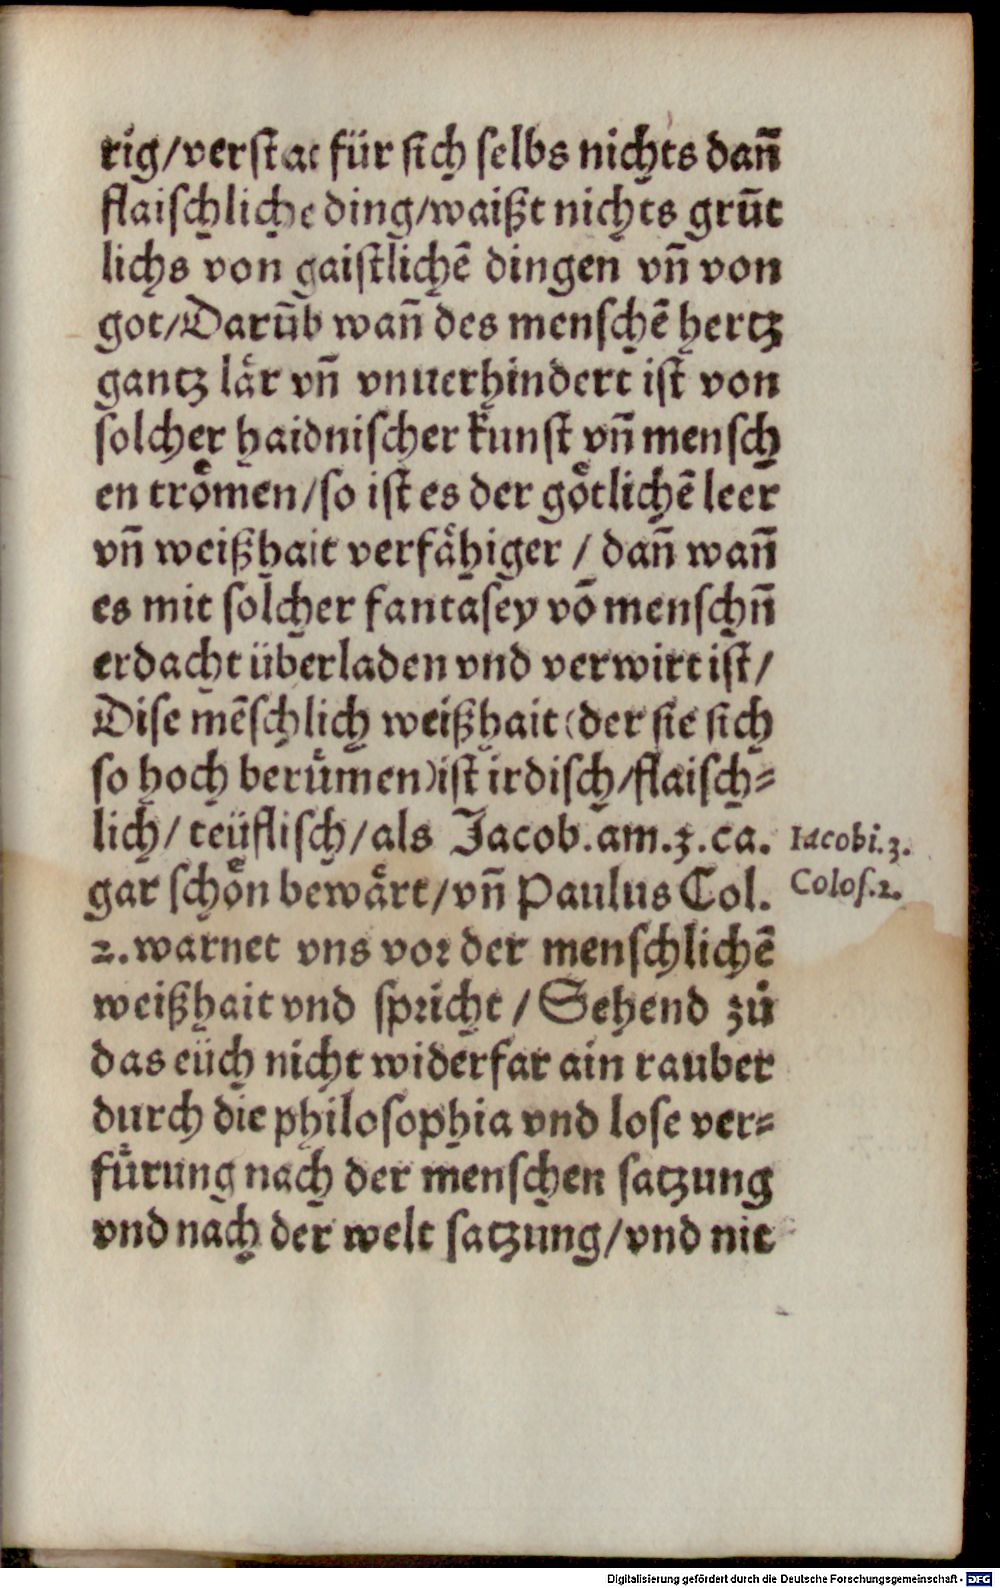 rig/verstat für sich selbs nichts dañ
flaischliche ding/waißt nichts grūt
lichs von gaistlichē dingen vñ von
got/Darūb wañ des menschē hertz
gantz lär vñ vnuerhindert ist von
solcher haidnischer kunst vñ mensch
en trömen/so ist es der götlichē leer
vñ weißhait verfähiger / dañ wañ
es mit solcher fantasey vō menschñ
erdacht überladen vnd verwirt ist/
Dise mēschlich weißhait (der sie sich
so hoch berümen) ist irdisch/flaisch⸗
lich/ teüflisch/als Jacob.am.3.ca.
Iacobi.3.
gar schön bewärt/vñ Paulus Col.
Colos.2.
2.warnet vns vor der menschlichē
weißhait vnd spricht / Sehend zů
das eüch nicht widerfar ain rauber
durch die philosophia vnd lose ver⸗
fürung nach der menschen satzung
vnd nach der welt satzung/vnd nit
Digitalisierung gefördert durch die Deutsche Forschungsgemeinschaft - DFG